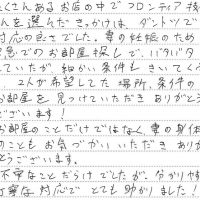 たくさんあるお店の中でフロンティア技
さんを選んだきっかけは、ダントツで
対応の良さでした。妻の妊娠のため
急でのお部屋探しで、バタバタ
していたが細かい条件もきいてく
2人が希望してた場所、条件の
お部屋を見つけていただきありがと
ございます！
お部屋のことだけではなく妻の身体
のこともお気づかいいただきありが
とうございます。
不安なことだらけでしたが、分かりやす
丁寧な対応でとても助かりました！